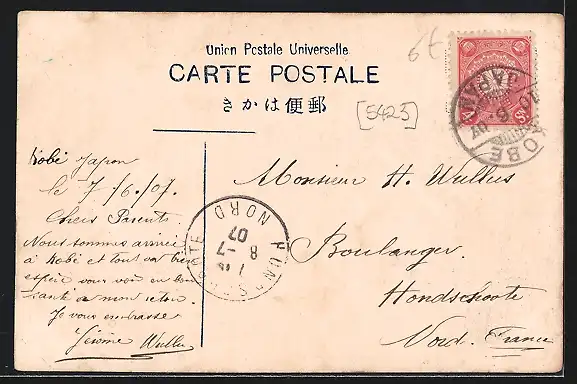 Union Postale Universelle
CARTE POSTALE
きかは便郵
6t
[5425]
JAPAN
10.6.07
KOBE
Kobé Japon
le 7/6/07.
Chers Parents.
Nous sommes arrivés
à Kobé et tout va bien
espère vous voir en bonne
santé a mon retour.
Je vous embrasse
Jérome Wullus
HONDSCHOOTE
NORD
8 -7
07
Monsieur H. Wullus
Boulanger.
Hondschoote
Nord. France